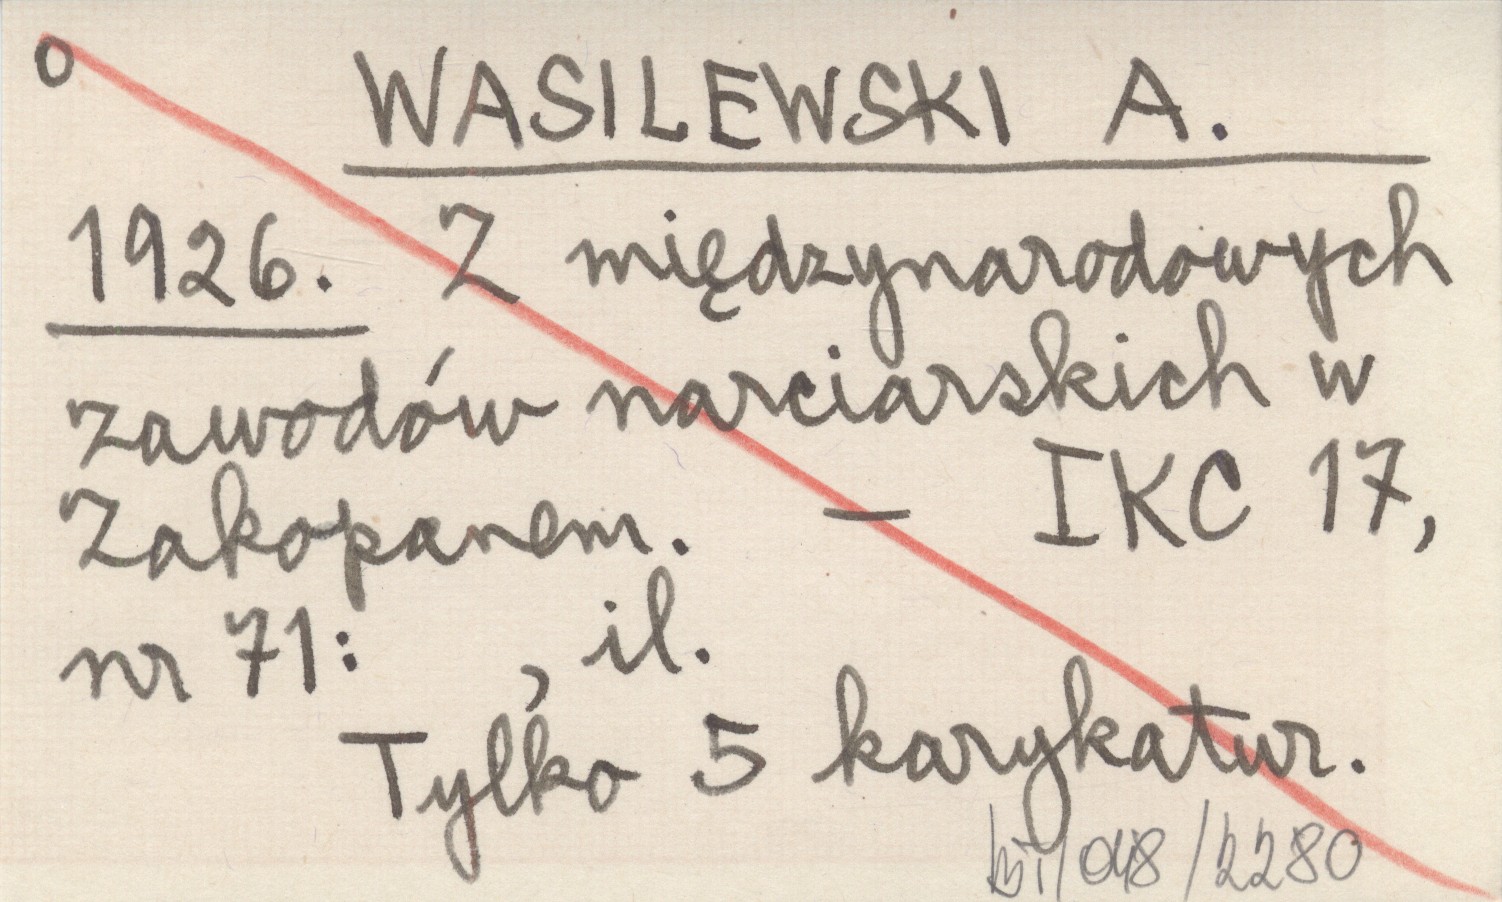 o WASILEWSKI A.
1926. Z międzynarodowych
zawodów narciarskich w
Zakopanem. – IKC 17,
nr 71: , il.
Tylko 5 karykatur.
/048/2280